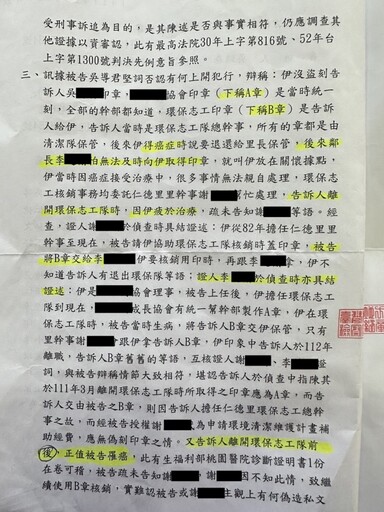 受刑事訴追為目的，是其陳述是否與事實相符，仍應調查其
他證據以資審認，此有最高法院30年上字第816號、52年台
上字第1300號判決先例意旨參照。
三、訊據被告吳導君堅詞否認有何上開犯行，辯稱：伊沒盜刻告
訴人吳 印章， 協會印章（下稱A章）是當時統一
刻，全部的幹部都知道，環保志工印章（下稱B章）是告訴
人給伊，告訴人當時是環保志工隊總幹事，所有的章都是由
清潔隊保管，後來伊得癌症時說要退還給里長保管，後來鄰
長李 怕無法及時向伊取得印章，就叫伊放在關懷據點，
伊當時因癌症接受治療中，很多事情無法親自處理，環保志
工核銷事務均委託仁德里里幹事謝 幫忙處理，告訴人離
開環保志工隊時，因伊疲於治療，疏未告知謝 等語。經
查，證人謝 於偵查時具結證述：伊從82年擔任仁德里里
幹事至現在，被告請伊協助環保志工隊核銷時蓋印章，被告
將B章交給李 伊要核銷用印時，再跟李 拿，伊不
知道告訴人有退出環保隊等語；證人李 於偵查時亦具結
證述：伊是 協會理事，被告上任後，伊擔任環保志工
隊到現在， 成長協會有統一幫幹部製作A章，伊在環
保志工隊時，被告當時生病，將告訴人B章交伊保管，只有
里幹事謝 跟伊拿告訴人B章，伊印象中告訴人於112年
離職，告訴人B章舊舊的等語，互核證人謝 、李 證
詞，與被告辯情節大致相符，堪認告訴人於偵查中指陳其
於111年3月離開環保志工隊時所取得之印章應為A章，而告
訴人交由被告之B章，則因告訴人擔任仁德里環保志工總幹
事之故，而經被告授權謝 為申請環境清潔維護計畫補
助經費，應無偽刻印章之情。又告訴人離開環保志工隊前
後，正值被告罹癌，此有生福利部桃園醫院診斷證明書1份
在卷可稽，被告疏未告知謝 ，謝 因不知此情，致繼
續使用B章核銷，實難認被告或謝 主觀上有何偽造私文